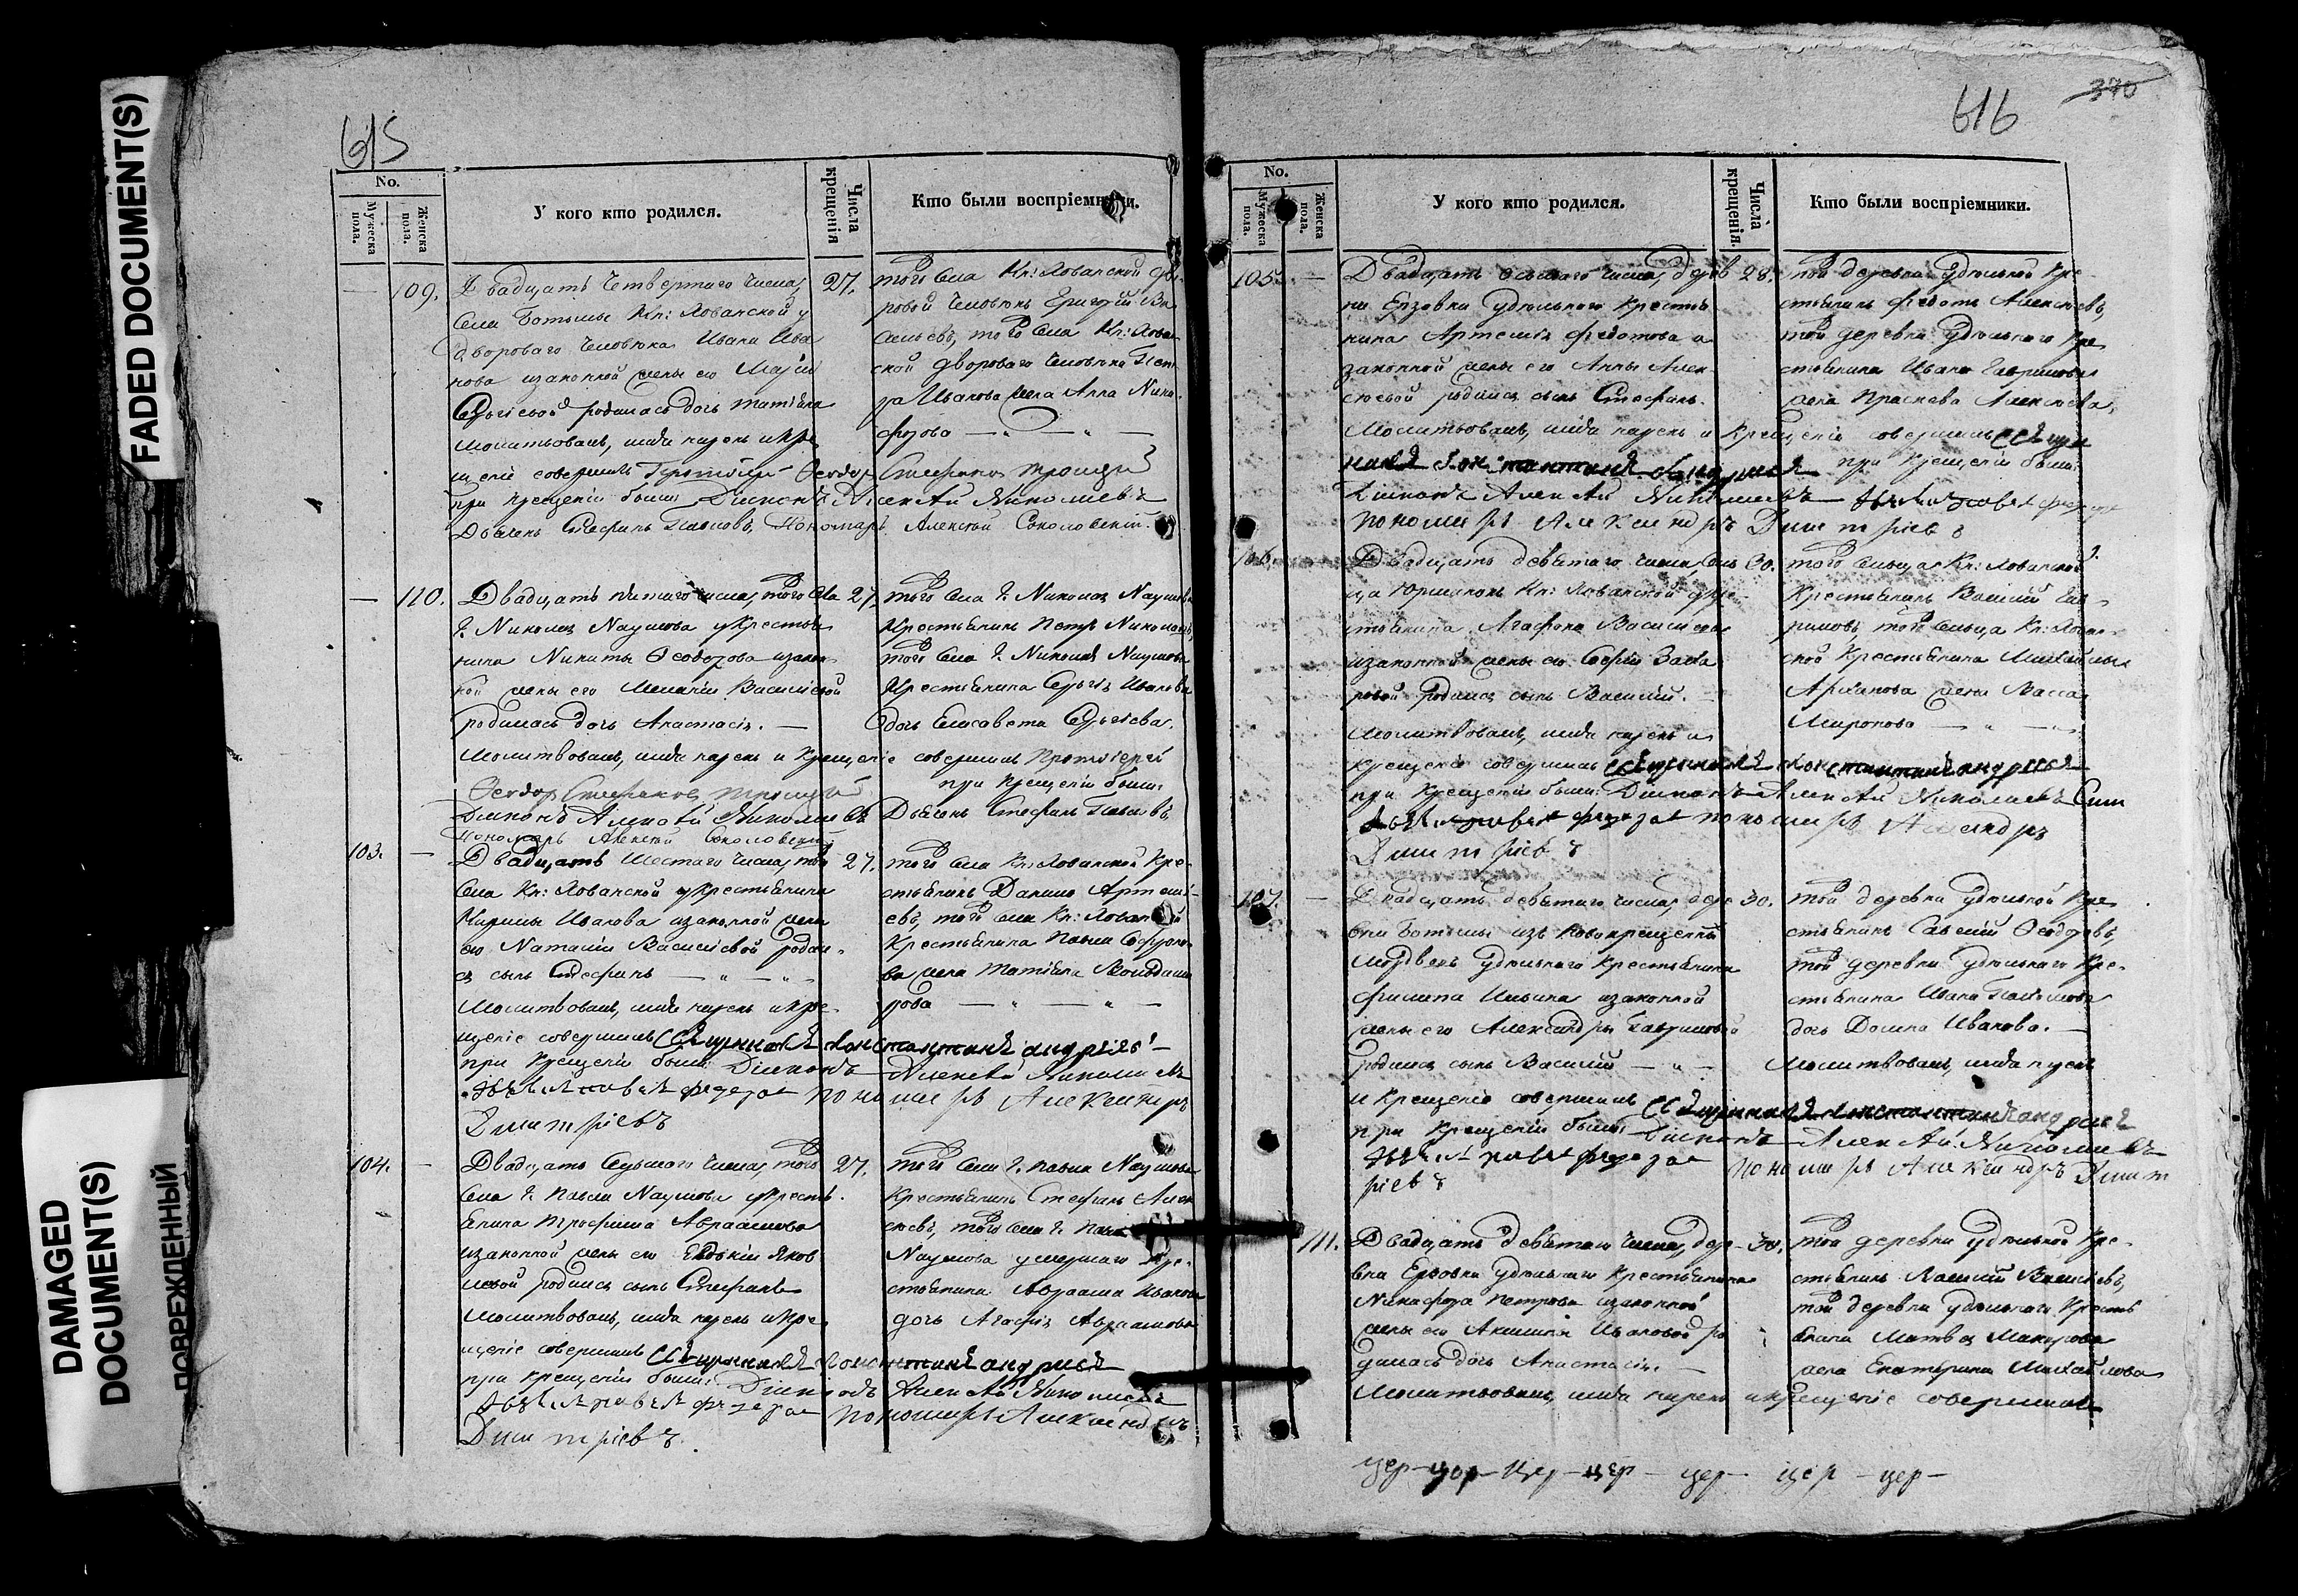 FADED DOCUMENT(S)
DAMAGED
DOCUMENT(S)
ПОВРЕЖДЕННЫЙ
615
No.
Мужеска пола.
Женска пола.
У кого кто родился.
Числа крещенія
Кто были воспріемники.
109.
Двадцать четвертаго числа,
села Ботьмы Кн: Хованской у
двороваго человѣка Ивана Ива
нова и законной жены его
родилась дочь Татіана
Молитвовалъ, имя нарекъ и кре
щеніе совершилъ Протоіерей Ѳеодор Стефанов Троицкій
при крещеніи были Діаконъ Алексѣй Николаевъ
Дьячекъ Стефанъ Пономарь Алексѣй Соколовскій.
27.
того села Кн: Хованской дво
ровой человѣкъ Григорій Ва
сильевъ, того села Кн: Хован
ской двороваго человѣка Пет
ра Иванова жена Анна Ники
форова
110.
Двадцать пятаго числа, того села
Г. Николая Наумова у крестья
нина Никиты Ѳеодорова и закон
ной жены его Василіевой
родилась дочь Анастасія.
Молитвовалъ, имя нарекъ и крещеніе совершилъ Протоіерей
Ѳеодор Стефанов Троицкій при крещеніи были
Діаконъ Алексѣй Николаевъ Дьячекъ Стефанъ
Пономарь Алексѣй Соколовскій
27.
того села Г. Николая Наумова
крестьянинъ Петръ Николаевъ,
того села Г. Николая Наумова
крестьянина Сергія Иванова
дочь Елисавета Сергіева.
103.
Двадцать шестаго числа, того
села Кн: Хованской у крестьянина
Иванова и законной жены
его Наталіи Василіевой родил
ся сынъ Стефанъ
Молитвовалъ, имя нарекъ и кре
щеніе совершилъ Священникъ Константинъ Андреевъ
при крещеніи были Діаконъ Алексѣй Николаевъ
пономарь Александръ
Димитріевъ
27.
того села Кн: Хованской кре
стьянинъ Данило Артемі
евъ, того села Кн: Хованской
крестьянина Павла Софроно
ва жена Татіана
рова
104.
Двадцать седьмого числа, того
села Г. Павла Наумова у кресть
янина Трофима Авраамова
и законной жены его Евдокіи Яков
левой родился сынъ Стефанъ
Молитвовалъ, имя нарекъ и кре
щеніе совершилъ Священникъ Константинъ Андреевъ
при крещеніи были: Діаконъ Алексѣй Николаевъ
пономарь Александръ
Димитріевъ
27.
того села Г. Павла Наумова
крестьянинъ Стефанъ Алек
сѣевъ, того села Г. Павла
Наумова умершаго кре
стьянина Авраама Иванова
дочь Агафія Авраамова
370
616
No.
Мужеска пола.
Женска пола.
У кого кто родился.
Числа крещенія.
Кто были воспріемники.
105.
Двадцать осьмаго числа, дерев
ни Ерзовки удѣльнаго крестья
нина Артемія Федотова и
законной жены его Анны Алек
сѣевой родился сынъ Стефанъ.
Молитвовалъ, имя нарекъ и крещеніе совершилъ Священ
никъ Константинъ Андреевъ при крещеніи были:
Діаконъ Алексѣй Николаевъ
пономарь Александръ Димитріевъ
28.
той деревни удѣльной кре
стьянинъ Федотъ Алексѣевъ,
той деревни удѣльнаго кре
стьянина Ивана Гаврилова
жена Праскева Алексѣева,
106.
Двадцать девятаго числа, сель
ца Кн: Хованской кре
стьянина Агафона Василіева
и законной жены его Софіи Заха
ровой родился сынъ Василій.
Молитвовалъ, имя нарекъ и
крещеніе совершилъ Священникъ Константинъ Андреевъ
при крещеніи были: Діаконъ Алексѣй Николаевъ
пономарь Александръ
Димитріевъ
30.
того сельца Кн: Хованской
крестьянинъ Василій Гав
риловъ, того сельца Кн: Хован
ской крестьянина Михаила
жена Васса
Миронова
107.
Двадцать девятаго числа, дере
вни Ботьмы изъ новокрещенной
Мордвы удѣльнаго крестьянина
Филипа Ильина и законной
жены его Александры Гавриловой
родился сынъ Василій
Молитвовалъ, имя нарекъ
и крещеніе совершилъ Священникъ Константинъ Андреевъ
при крещеніи были Діаконъ Алексѣй Николаевъ
пономарь Александръ Димит
ріевъ
30.
той деревни удѣльной кре
стьянинъ Савелій Ѳеодоровъ,
той деревни удѣльнаго кре
стьянина Ивана
дочь Домна Иванова.
111.
Двадцать девятаго числа, дере
вни Ерзовки удѣльнаго крестьянина
Никифора Петрова и законной
жены его Акилины Ивановой ро
дилась дочь Анастасія.
Молитвовалъ, имя нарекъ и крещеніе совершилъ
30.
той деревни удѣльной кре
стьянинъ Василіевъ,
той деревни удѣльнаго кресть
янина Матвѣя Макарова
жена Екатерина Михайлова
цер- цер- цер- цер- цер- цер- цер-